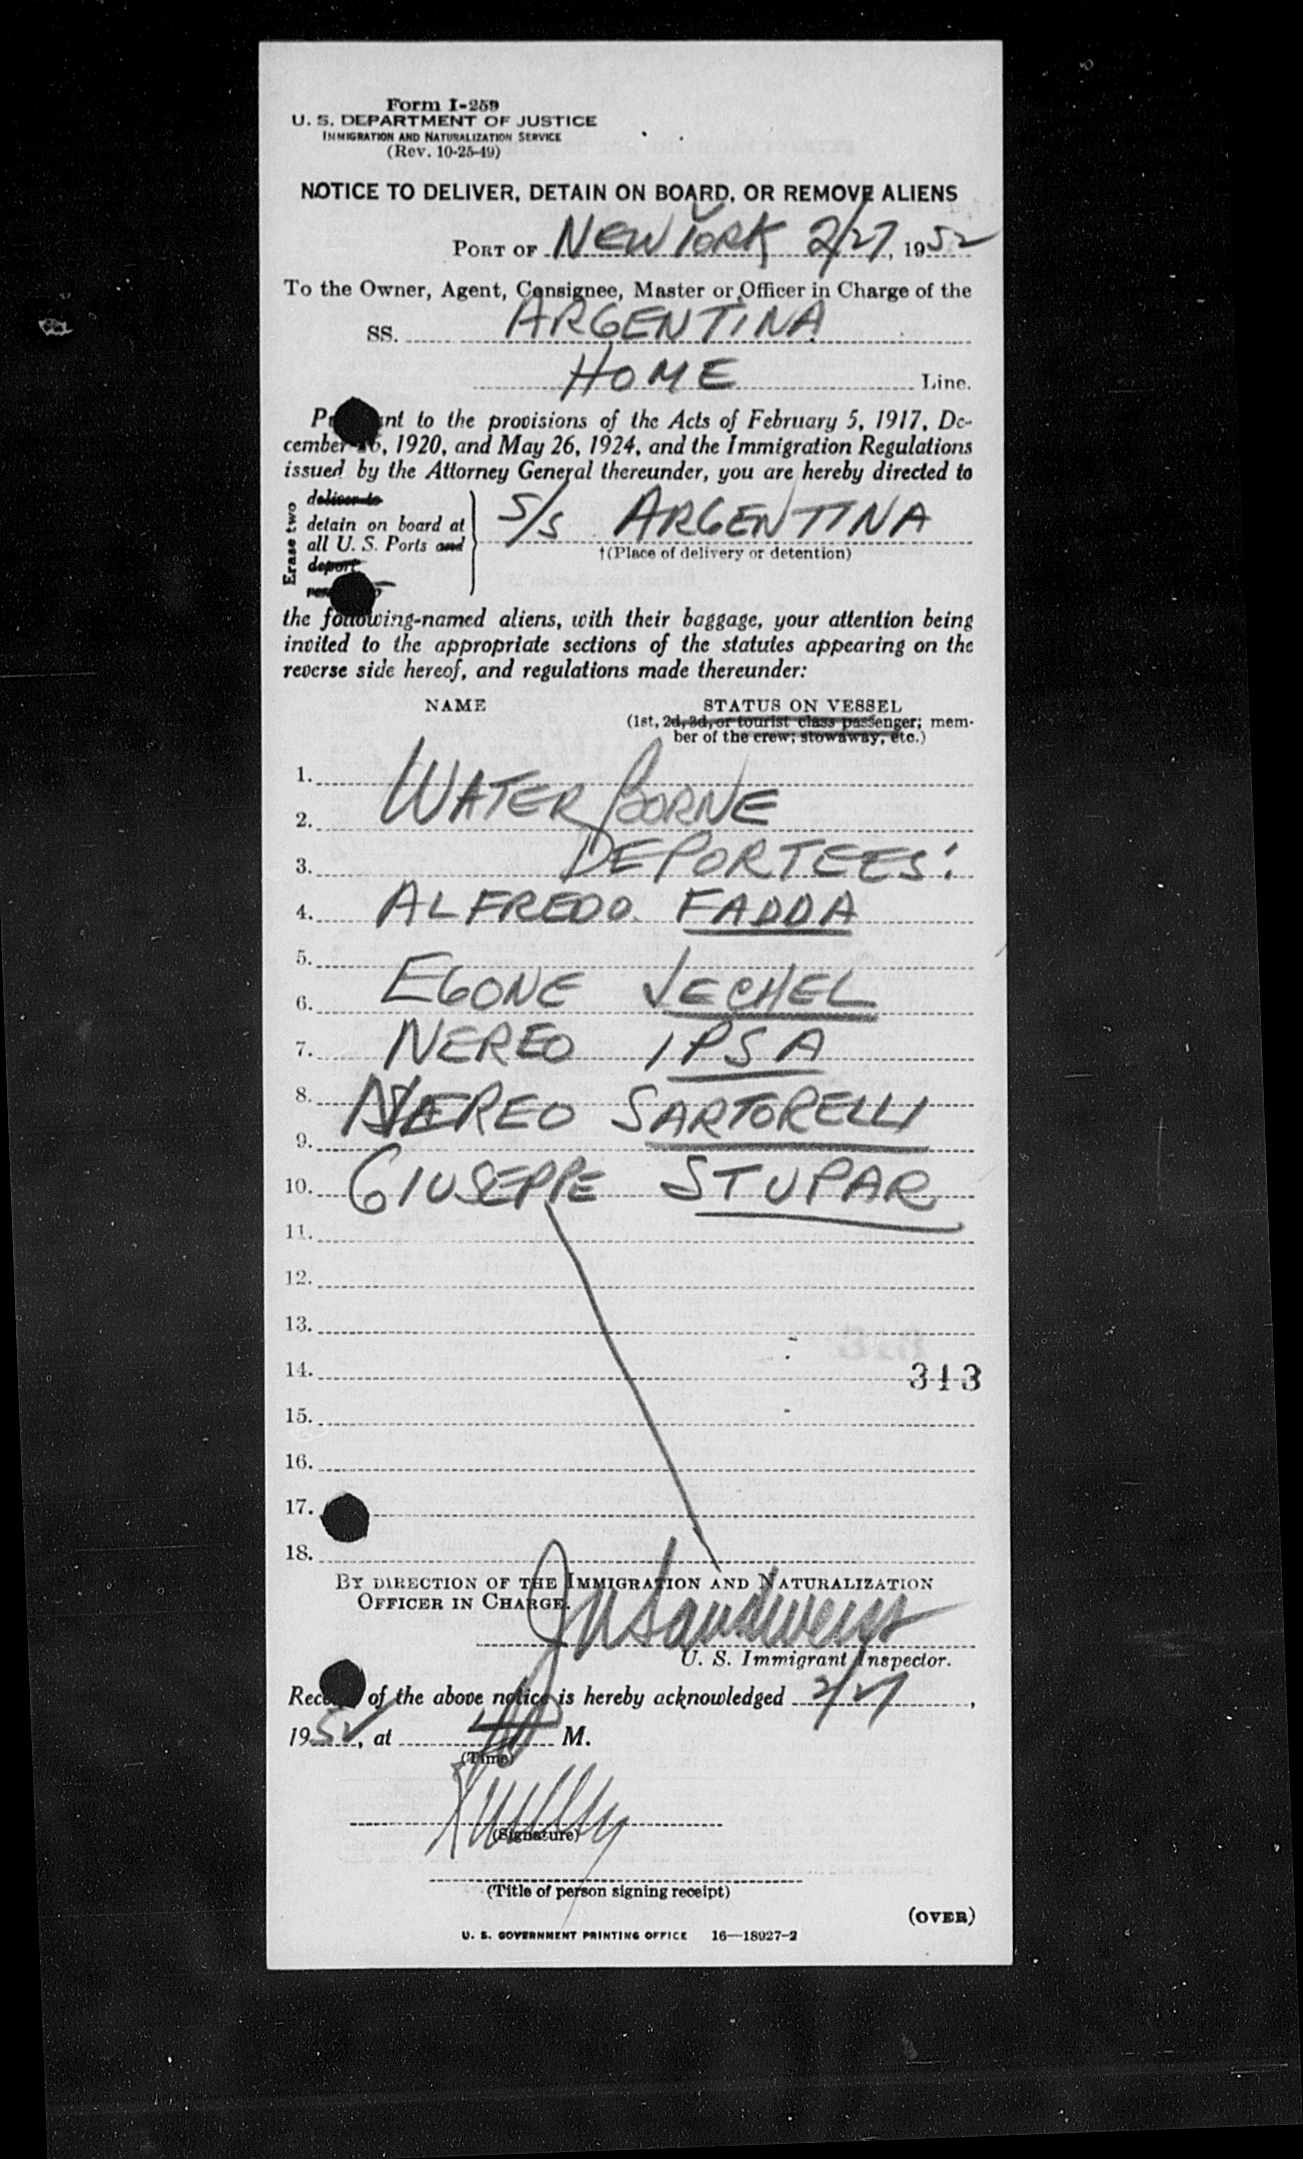 Form I-259
U. S. DEPARTMENT OF JUSTICE
IMMIGRATION AND NATURALIZATION SERVICE
(Rev. 10-25-49)
NOTICE TO DELIVER, DETAIN ON BOARD, OR REMOVE ALIENS
PORT OF NEW YORK 2/27, 1952
To the Owner, Agent, Consignee, Master or Officer in Charge of the
SS. ARGENTINA
HOME Line.
to the provisions of the Acts of February 5, 1917, De-
cember 26, 1920, and May 26, 1924, and the Immigration Regulations
issued by the Attorney General thereunder, you are hereby directed to
Erase two
deliver to
detain on board at
all U. S. Ports and
deport
S/S ARGENTINA
†(Place of delivery or detention)
the following-named aliens, with their baggage, your attention being
invited to the appropriate sections of the statutes appearing on the
reverse side hereof, and regulations made thereunder:
NAME STATUS ON VESSEL
(1st, 2d, 3d, or tourist class passenger; mem-
ber of the crew; stowaway, etc.)
1. WATER BORNE
2.
3. DEPORTEES:
4. ALFREDO FADDA
5.
6. EGONE JECHEL
7. NEREO IPSA
8. NEREO SARTORELLI
9.
10. GIUSEPPE STUPAR
11.
12.
13.
14. 313
15.
16.
17.
18.
BY DIRECTION OF THE IMMIGRATION AND NATURALIZATION
OFFICER IN CHARGE.
U. S. Immigrant Inspector.
of the above notice is hereby acknowledged 2/27,
1952, at M.
(Time)
(Signature)
(Title of person signing receipt)
(OVER)
U. S. GOVERNMENT PRINTING OFFICE 16—18927-2